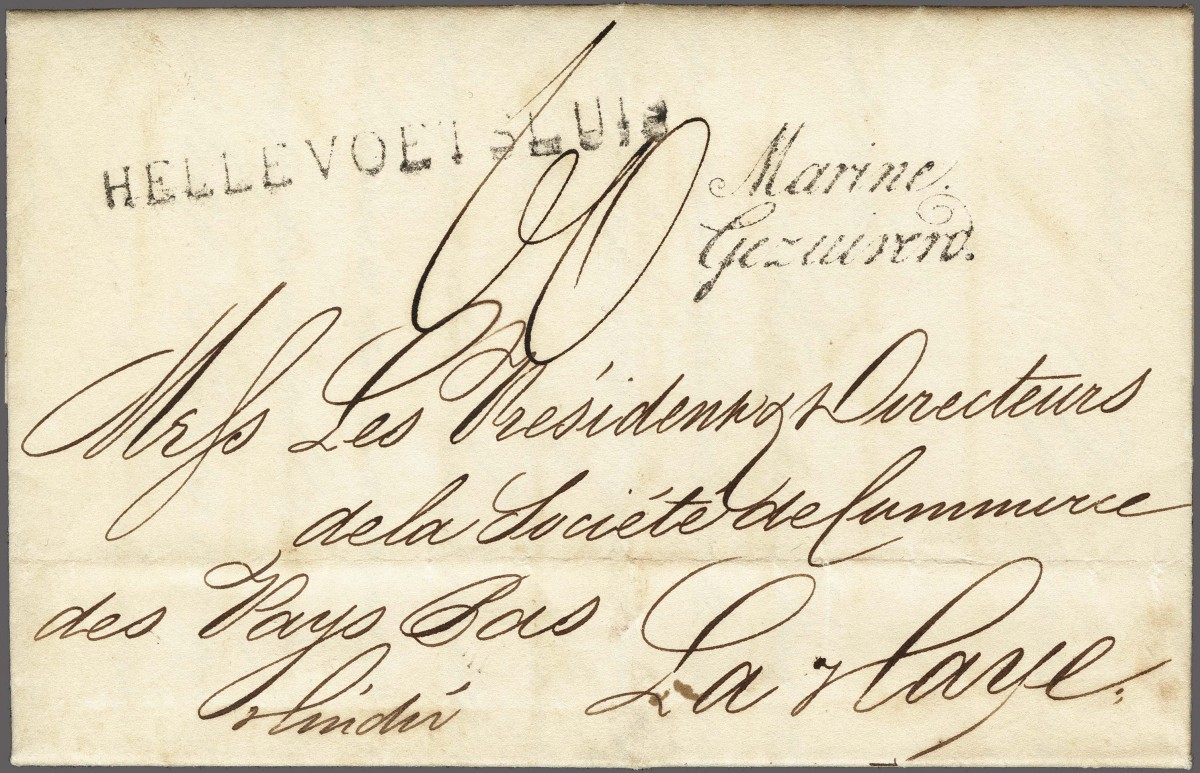 HELLEVOETSLUIS
60
Marine.
Gezuiverd.
Mess Les Président & Directeurs
de la Société de Commerce
des Pays Bas
La Haye.